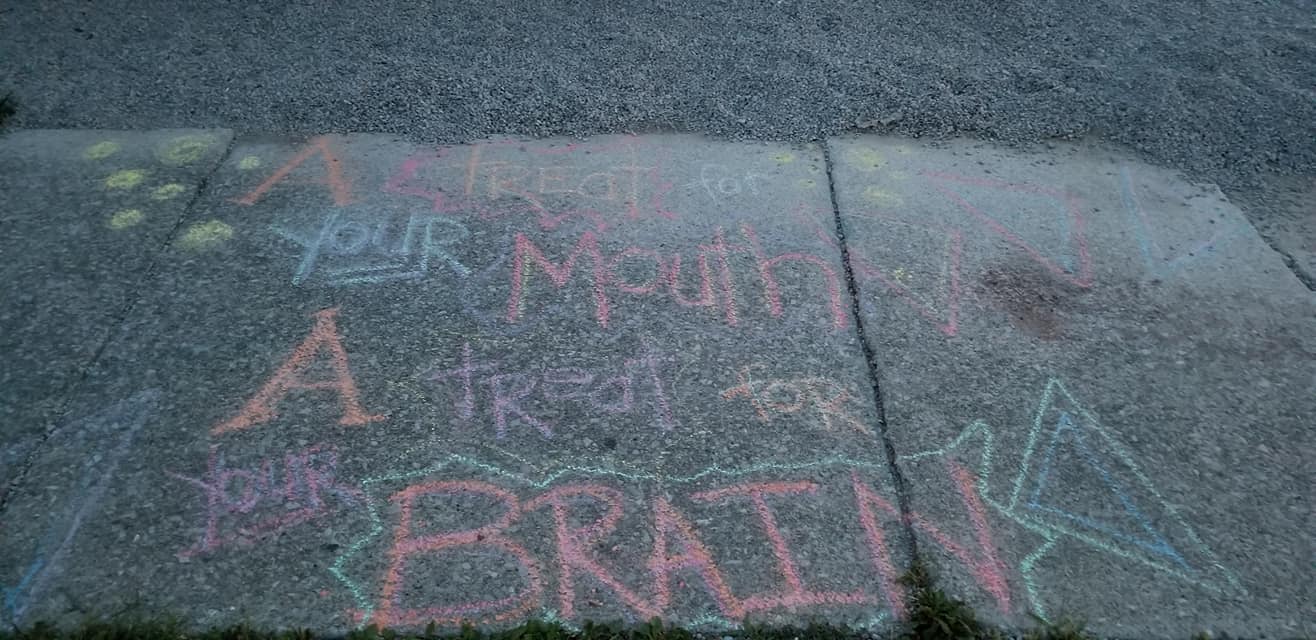 A TREaT for
YOUR Mouth
A tReaT foR
YOUR
BRAIN